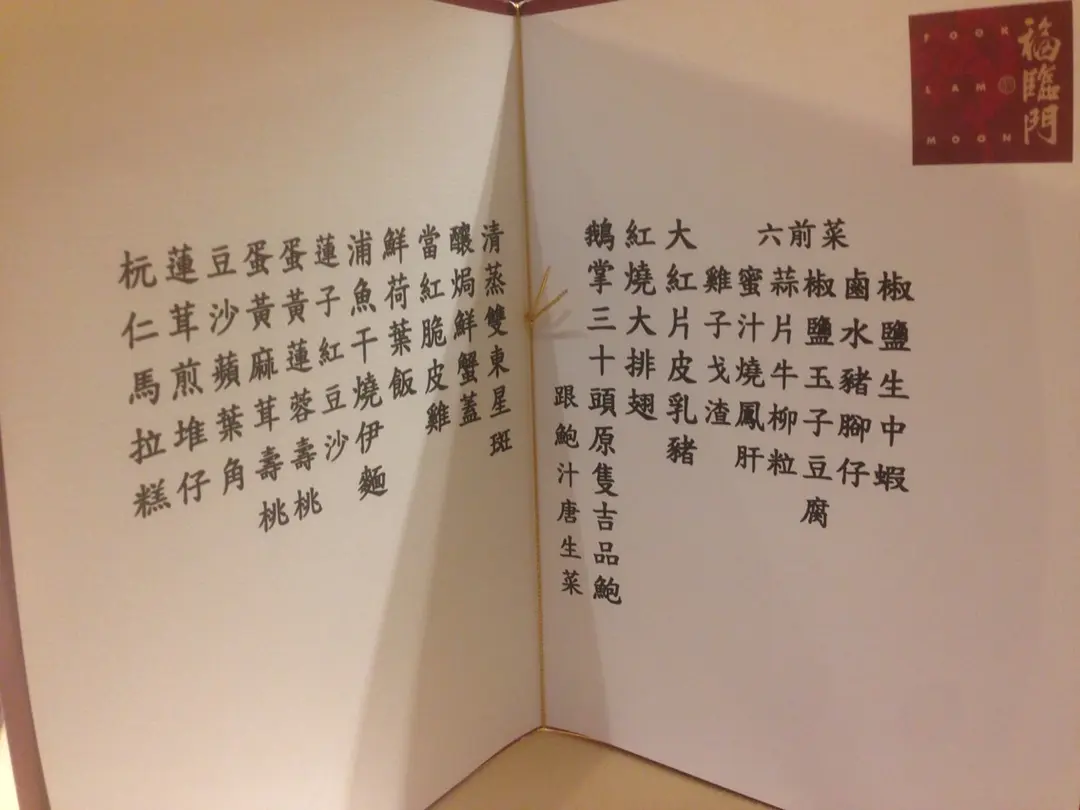 FOOK
LAM
MOON
福臨門
六前菜
椒鹽生中蝦
鹵水豬腳仔
椒鹽玉子豆腐
蒜片牛柳粒
蜜汁燒鳳肝
雞子戈渣
大紅片皮乳豬
紅燒大排翅
鵝掌三十頭原隻吉品鮑
跟鮑汁唐生菜
清蒸雙東星斑
釀焗鮮蟹蓋
當紅脆皮雞
鮮荷葉飯
浦魚干燒伊麵
蓮子紅豆沙
蛋黃蓮蓉壽桃
蛋黃麻茸壽桃
豆沙蘋葉角
蓮茸煎堆仔
杬仁馬拉糕